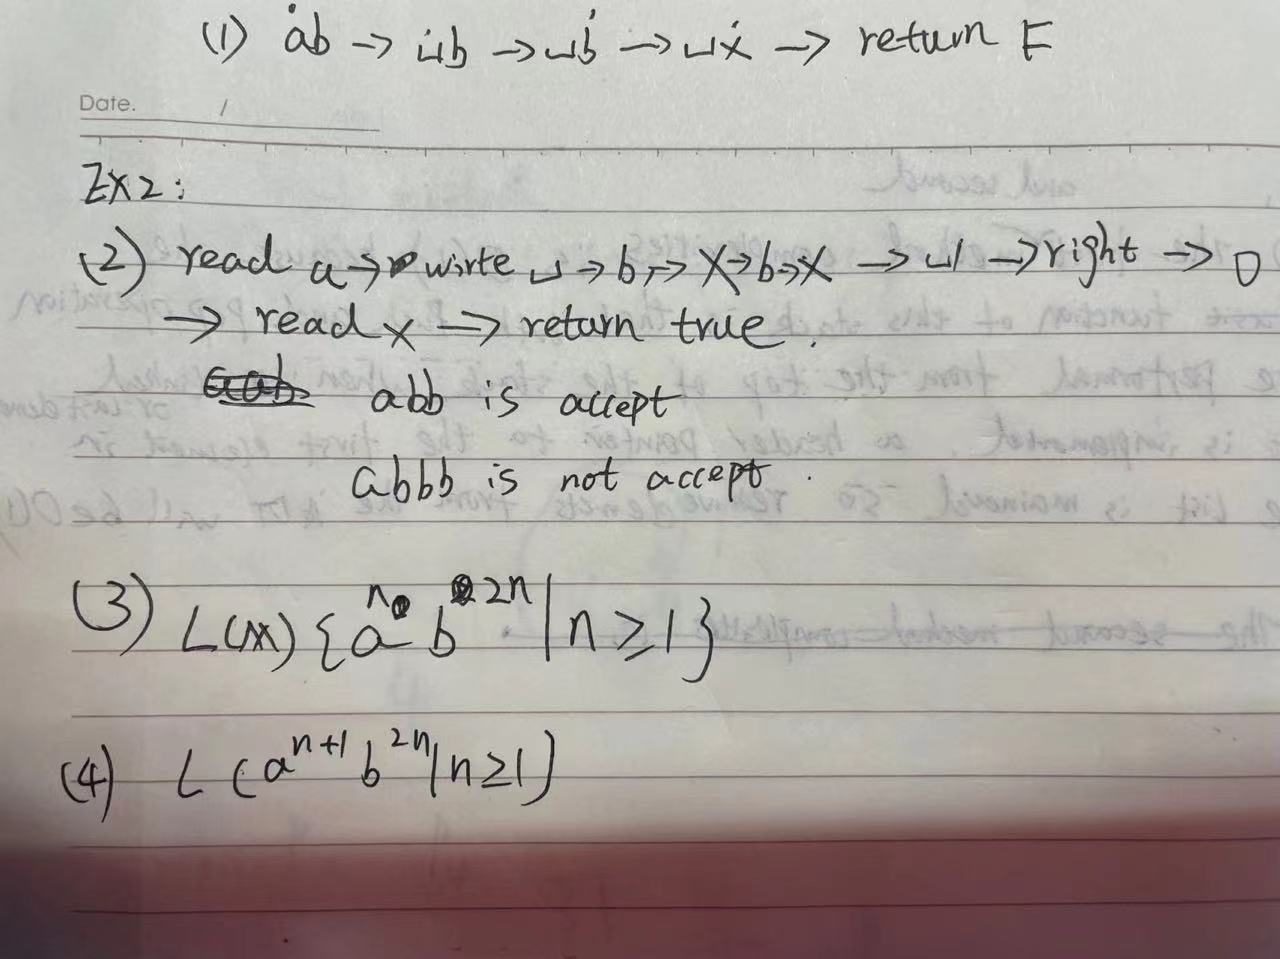 (1) ȧb → ⊔̇b → ⊔ḃ → ⊔ẋ → return F
Date. /
EX2:
(2) read a → wirte ⊔ → b → X → b → X → ⊔ → right → 0
→ read x → return true.
abb is accept
abbb is not accept.
(3) L(M) {aⁿ b²ⁿ | n ≥ 1}
(4) L (aⁿ⁺¹ b²ⁿ | n ≥ 1)